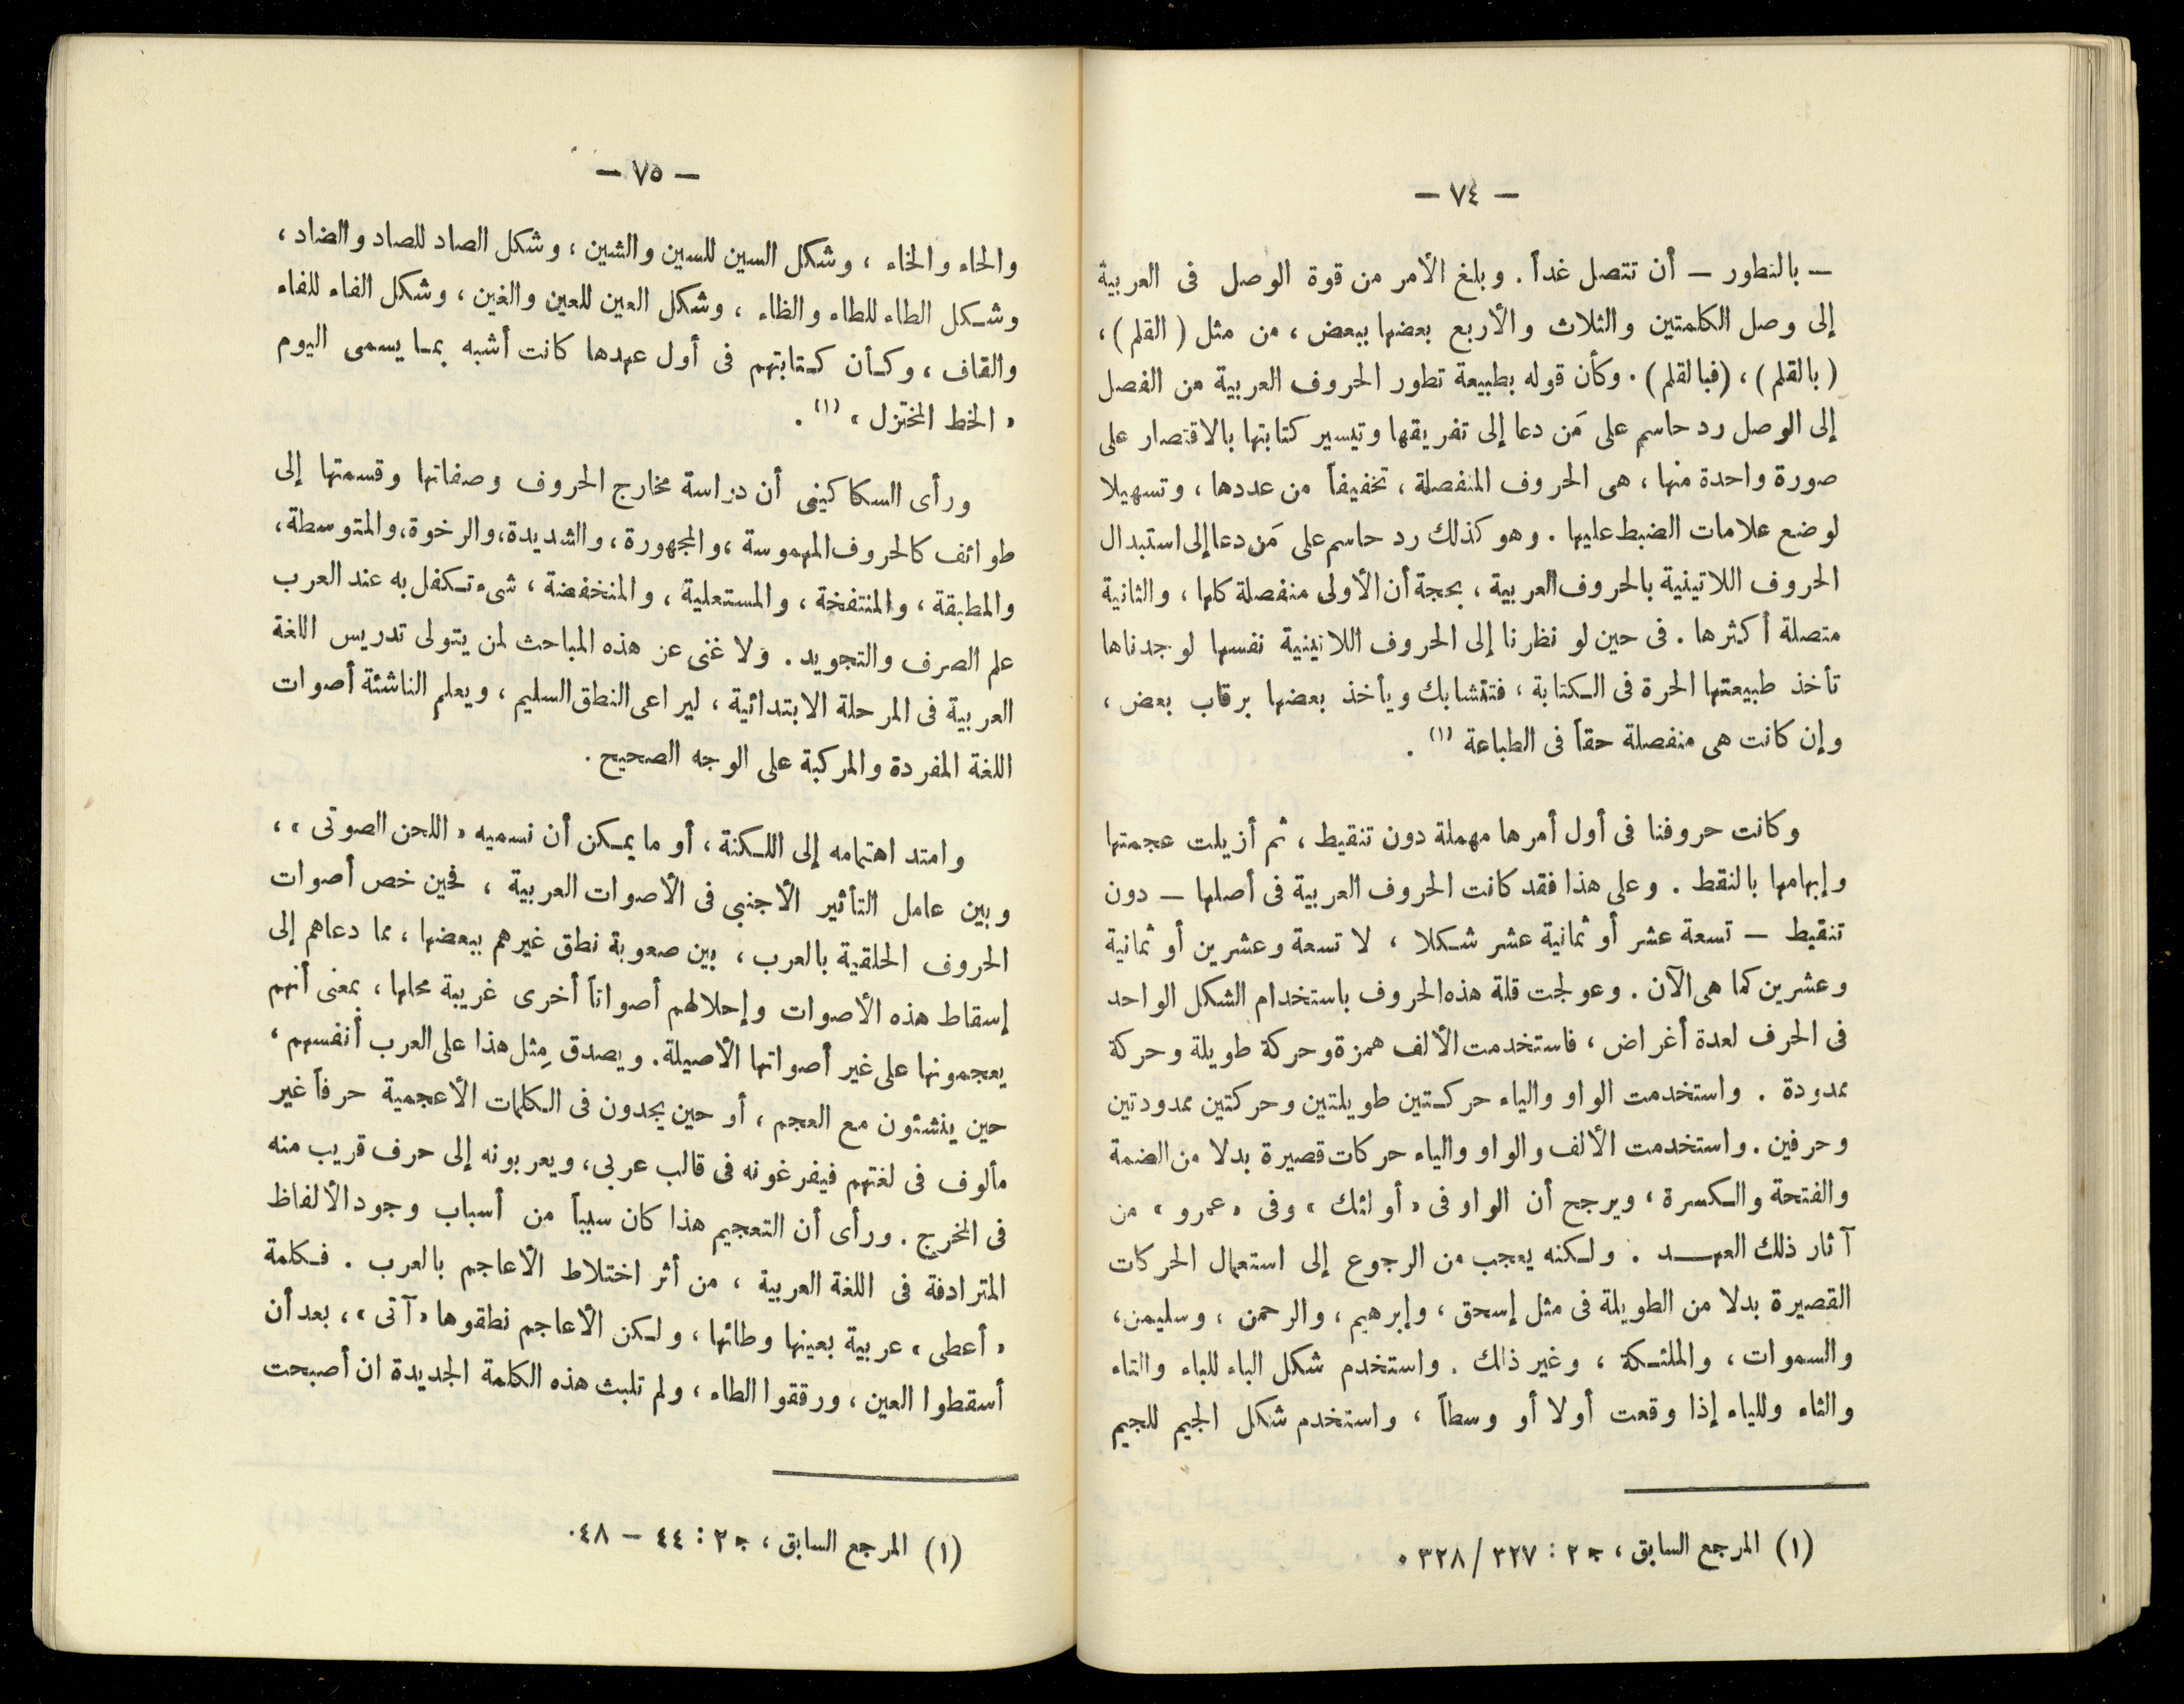 — ٧٤ —
— بالتطور — أن تتصل غداً . وبلغ الأمر من قوة الوصل فى العربية
إلى وصل الكلمتين والثلاث والأربع بعضها ببعض ، من مثل ( القلم ) ،
( بالقلم ) ، ( فبالقلم ) . وكأن قوله بطبيعة تطور الحروف العربية من الفصل
إلى الوصل رد حاسم على مَن دعا إلى تفريقها وتيسير كتابتها بالاقتصار على
صورة واحدة منها ، هى الحروف المنفصلة ، تخفيفاً من عددها ، وتسهيلا
لوضع علامات الضبط عليها . وهو كذلك رد حاسم على مَن دعا إلى استبدال
الحروف اللاتينية بالحروف العربية ، بحجة أن الأولى منفصلة كلها ، والثانية
متصلة أكثرها . فى حين لو نظرنا إلى الحروف اللاتينية نفسها لوجدناها
تأخذ طبيعتها الحرة فى الكتابة ، فتتشابك ويأخذ بعضها برقاب بعض ،
وإن كانت هى منفصلة حقاً فى الطباعة (١) .
وكانت حروفنا فى أول أمرها مهملة دون تنقيط ، ثم أزيلت عجمتها
وإبهامها بالنقط . وعلى هذا فقد كانت الحروف العربية فى أصلها — دون
تنقيط — تسعة عشر أو ثمانية عشر شكلا ، لا تسعة وعشرين أو ثمانية
وعشرين كما هى الآن . وعولجت قلة هذه الحروف باستخدام الشكل الواحد
فى الحرف لعدة أغراض ، فاستخدمت الألف همزة وحركة طويلة وحركة
ممدودة . واستخدمت الواو والياء حركتين طويلتين وحركتين ممدودتين
وحرفين . واستخدمت الألف والواو والياء حركات قصيرة بدلا من الضمة
والفتحة والكسرة ، ويرجح أن الواو فى « أولئك » وفى « عمرو » من
آثار ذلك العهد . ولكنه يعجب من الرجوع إلى استعمال الحركات
القصيرة بدلا من الطويلة فى مثل إسحق ، وإبرهيم ، والرحمن ، وسليمن ،
والسموات ، والملئكة ، وغير ذلك . واستخدم شكل الباء للباء والتاء
والثاء وللياء إذا وقعت أولا أو وسطاً ، واستخدم شكل الجيم للجيم
(١) المرجع السابق ، ج ٢ : ٣٢٧/٣٢٨ .
— ٧٥ —
والحاء والخاء ، وشكل السين للسين والشين ، وشكل الصاد للصاد والضاد ،
وشكل الطاء للطاء والظاء ، وشكل العين للعين والغين ، وشكل الفاء للفاء
والقاف ، وكأن كتابتهم فى أول عهدها كانت أشبه بما يسمى اليوم
« الخط المختزل » (١) .
ورأى السكاكينى أن دراسة مخارج الحروف وصفاتها وقسمتها إلى
طوائف كالحروف المهموسة ، والمجهورة ، والشديدة ، والرخوة ، والمتوسطة ،
والمطبقة ، والمنتفخة ، والمستعلية ، والمنخفضة ، شىء تكفل به عند العرب
علم الصرف والتجويد . ولا غنى عن هذه المباحث لمن يتولى تدريس اللغة
العربية فى المرحلة الابتدائية ، ليراعى النطق السليم ، ويعلم الناشئة أصوات
اللغة المفردة والمركبة على الوجه الصحيح .
وامتد اهتمامه إلى اللكنة ، أو ما يمكن أن نسميه « اللحن الصوتى » ،
وبين عامل التأثير الأجنبى فى الأصوات العربية ، فحين خص أصوات
الحروف الحلقية بالعرب ، بين صعوبة نطق غيرهم ببعضها ، مما دعاهم إلى
إسقاط هذه الأصوات وإحلالهم أصواتاً أخرى غريبة محلها ، بمعنى أنهم
يعجمونها على غير أصواتها الأصيلة . ويصدق مِثل هذا على العرب أنفسهم ،
حين ينشئون مع العجم ، أو حين يجدون فى الكلمات الأعجمية حرفاً غير
مألوف فى لغتهم فيفرغونه فى قالب عربى ، ويعربونه إلى حرف قريب منه
فى المخرج . ورأى أن التعجيم هذا كان سبباً من أسباب وجود الألفاظ
المترادفة فى اللغة العربية ، من أثر اختلاط الأعاجم بالعرب . فكلمة
« أعطى » عربية بعينها وطائها ، ولكن الأعاجم نطقوها « آتى » ، بعد أن
أسقطوا العين ، ورققوا الطاء ، ولم تلبث هذه الكلمة الجديدة ان أصبحت
(١) المرجع السابق ، ج ٢ : ٤٤ — ٤٨ .